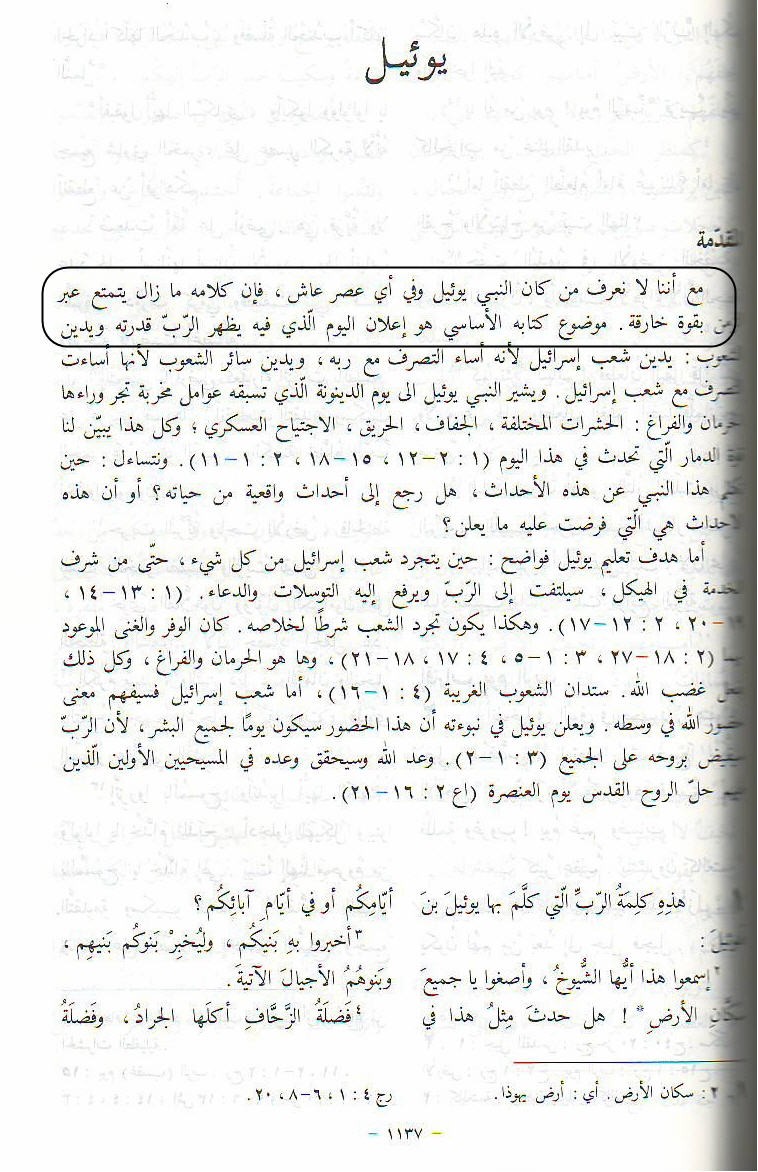 يوئيل
المقدّمة
مع أننا لا نعرف من كان النبي يوئيل وفي أي عصر عاش ، فإن كلامه ما زال يتمتع عبر
بقوة خارقة . موضوع كتابه الأساسي هو إعلان اليوم الّذي فيه يظهر الرّبّ قدرته ويدين
الشعوب : يدين شعب إسرائيل لأنه أساء التصرف مع ربه ، ويدين سائر الشعوب لأنها أساءت
التصرف مع شعب إسرائيل . ويشير النبي يوئيل الى يوم الدينونة الّذي تسبقه عوامل مخربة تجر وراءها
الحرمان والفراغ : الحشرات المختلفة ، الجفاف ، الحريق ، الاجتياح العسكري ؛ وكل هذا يبيّن لنا
قوة الدمار الّتي تحدث في هذا اليوم (١ : ٢-١٢ ، ١٥-١٨ ، ٢ : ١-١١) . ونتساءل : حين
هذا النبي عن هذه الأحداث ، هل رجع إلى أحداث واقعية من حياته ؟ أو أن هذه
الاحداث هي الّتي فرضت عليه ما يعلن ؟
أما هدف تعليم يوئيل فواضح : حين يتجرد شعب إسرائيل من كل شيء ، حتّى من شرف
الخدمة في الهيكل ، سيلتفت إلى الرّبّ ويرفع إليه التوسلات والدعاء . (١ : ١٣-١٤ ،
-٢٠ ، ٢ : ١٢-١٧) . وهكذا يكون تجرد الشعب شرطًا لخلاصه . كان الوفر والغنى الموعود
(٢ : ١٨-٢٧ ، ٣ : ١-٥ ، ٤ : ١٧ ، ١٨-٢١) ، وها هو الحرمان والفراغ ، وكل ذلك
غضب الله . ستدان الشعوب الغريبة (٤ : ١-١٦) ، أما شعب إسرائيل فسيفهم معنى
حضور الله في وسطه . ويعلن يوئيل في نبوءته أن هذا الحضور سيكون يومًا لجميع البشر ، لأن الرّبّ
سيفيض بروحه على الجميع (٣ : ١-٢) . وعد الله وسيحقق وعده في المسيحيين الأولين الّذين
حلّ الروح القدس يوم العنصرة (اع ٢ : ١٦-٢١) .
هذِهِ كلِمَةُ الرّبِّ الّتي كلَّمَ بها يوئيلَ بنَ
٢إسمعوا هذا أيُّها الشُّيوخُ ، وأصغوا يا جميعَ
سكَّانِ الأرضِ* ! هل حدثَ مِثلُ هذا في
أيّامِكُم أو في أيّامِ آبائِكُم ؟
٣أخبروا بهِ بَنيكُم ، وليُخبِرْ بَنوكُم بَنيهِم ،
وبَنوهُمُ الأجيالَ الآتيةَ .
٤فَضلَةُ الزَّحَّافِ أكلَها الجرادُ ، وفَضلَةُ
٢ : سكان الأرض . أي : أرض يهوذا .
رج ٤ : ١ ، ٦-٨ ، ٢٠ .
- ١١٣٧ -